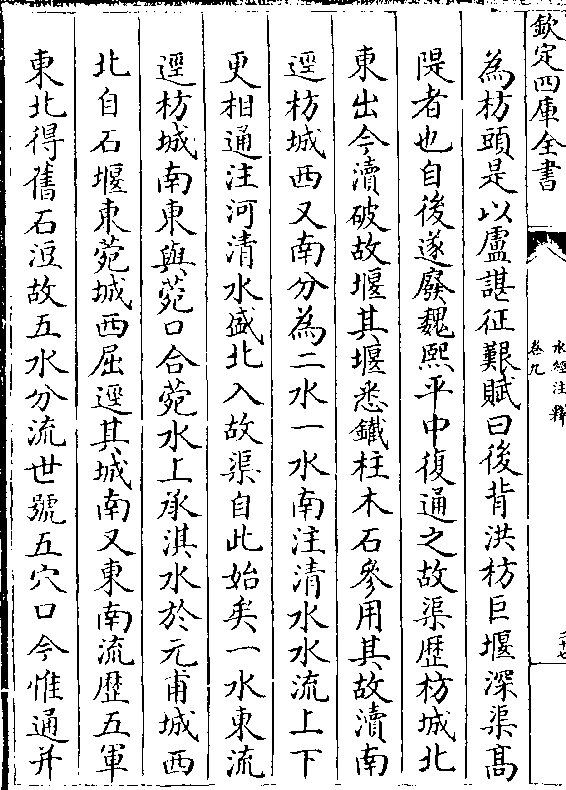 欽定四庫全書
水經注釋
卷九
二十七
為枋頭是以盧諶征艱賦曰後背洪枋巨堰深渠髙
隄者也自後遂廢魏熙平中復通之故渠歴枋城北
東出今瀆破故堰其堰悉鐵柱木石參用其故瀆南
逕枋城西又南分為二水一水南注清水水流上下
更相通注河清水盛北入故渠自此始矣一水東流
逕枋城南東與菀口合菀水上承淇水於元甫城西
北自石堰東菀城西屈逕其城南又東南流歴五軍
東北得舊石逗故五水分流世號五穴口今惟通并